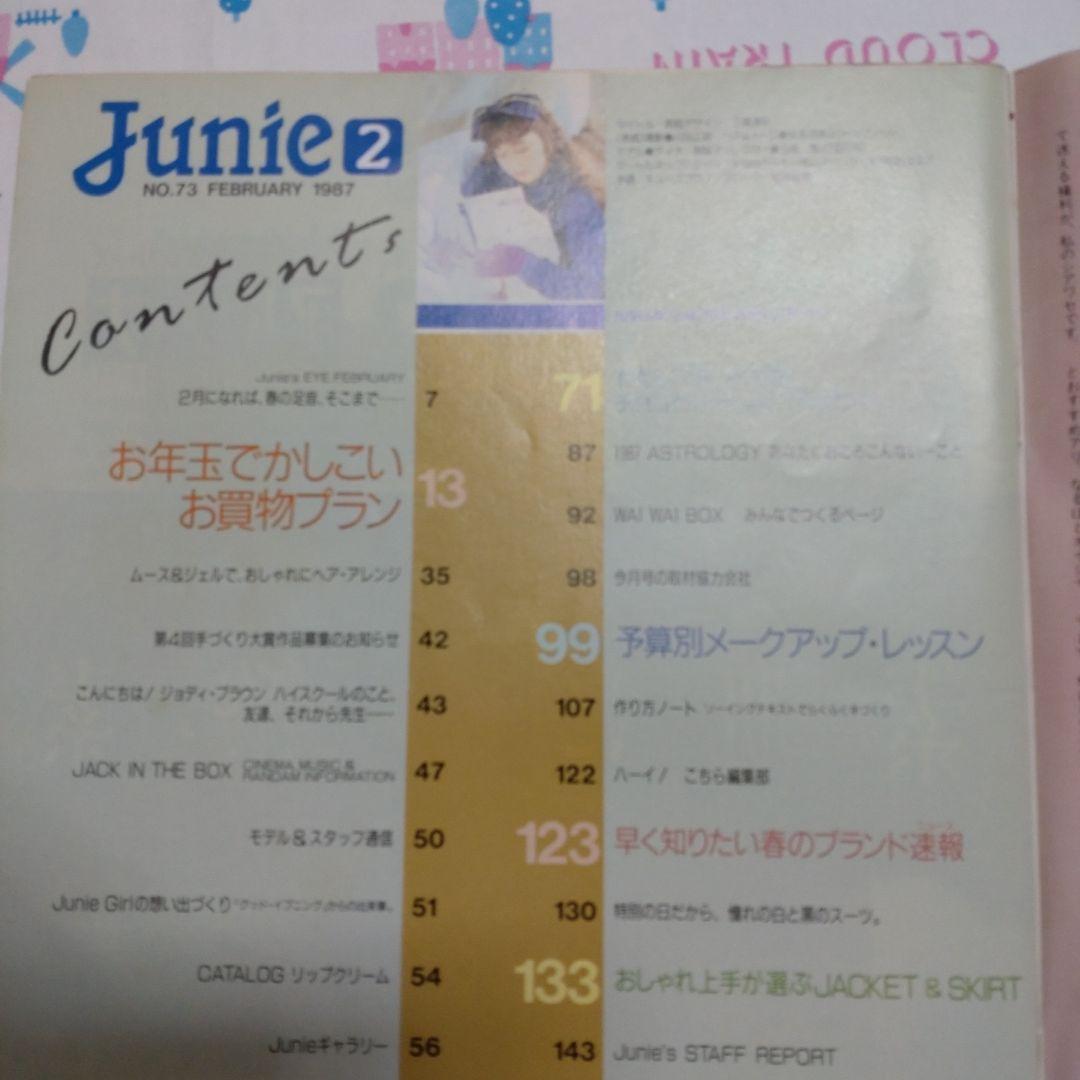 CLOUD TRAIN
Junie 2
NO.73 FEBRUARY 1987
Contents
Junie's EYE FEBRUARY
2月になれば、春の足音、そこまで…… 7
お年玉でかしこい
お買物プラン 13
ムース&ジェルで、おしゃれにヘア・アレンジ 35
第4回手づくり大賞作品募集のお知らせ 42
こんにちは! ジョディ・ブラウン ハイスクールのこと、
友達、それから先生…… 43
JACK IN THE BOX CINEMA, MUSIC &
RANDAM INFORMATION 47
モデル&スタッフ通信 50
Junie Girlの想い出づくり 51
CATALOG リップクリーム 54
Junieギャラリー 56
71
87 1987 ASTROLOGY あなたにおこるこんないいこと
92 WAI WAI BOX みんなでつくるページ
98 今月号の取材協力会社
99 予算別メークアップ・レッスン
107 作り方ノート ソーイングテキストでらくらく手づくり
122 ハーイ! こちら編集部
123 早く知りたい春のブランド速報
130 特別の日だから、憧れの白と黒のスーツ。
133 おしゃれ上手が選ぶJACKET & SKIRT
143 Junie's STAFF REPORT